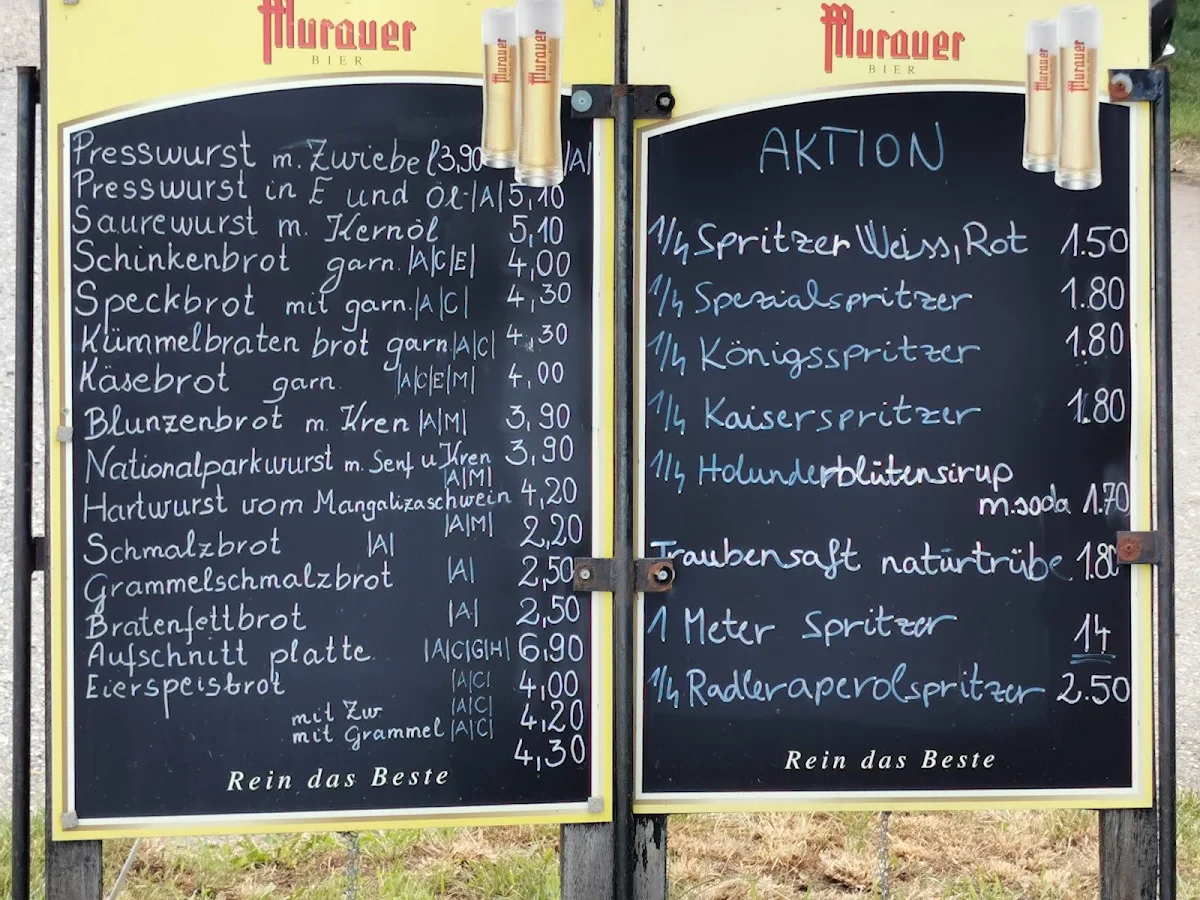 Murauer
BIER
Presswurst m. Zwiebel 3,90 |A|
Presswurst in E und Öl |A| 5,10
Saurewurst m. Kernöl 5,10
Schinkenbrot garn. |A|C|E| 4,00
Speckbrot mit garn. |A|C| 4,30
Kümmelbraten brot garn |A|C| 4,30
Käsebrot garn. |A|C|E|M| 4,00
Blunzenbrot m. Kren |A|M| 3,90
Nationalparkwurst m. Senf u. Kren 3,90
|A|M|
Hartwurst vom Mangalizaschwein 4,20
|A|M|
Schmalzbrot |A| 2,20
Grammelschmalzbrot |A| 2,50
Bratenfettbrot |A| 2,50
Aufschnitt platte |A|C|G|H| 6,90
Eierspeisbrot |A|C| 4,00
mit Zw |A|C| 4,20
mit Grammel |A|C| 4,30
Rein das Beste
Murauer
BIER
AKTION
1/4 Spritzer Weiss, Rot 1.50
1/4 Spezialspritzer 1.80
1/4 Königsspritzer 1.80
1/4 Kaiserspritzer 1.80
1/4 Holunderblütensirup
m. soda 1.70
Traubensaft natürtrübe 1.80
1 Meter Spritzer 14
1/4 Radleraperolspritzer 2.50
Rein das Beste